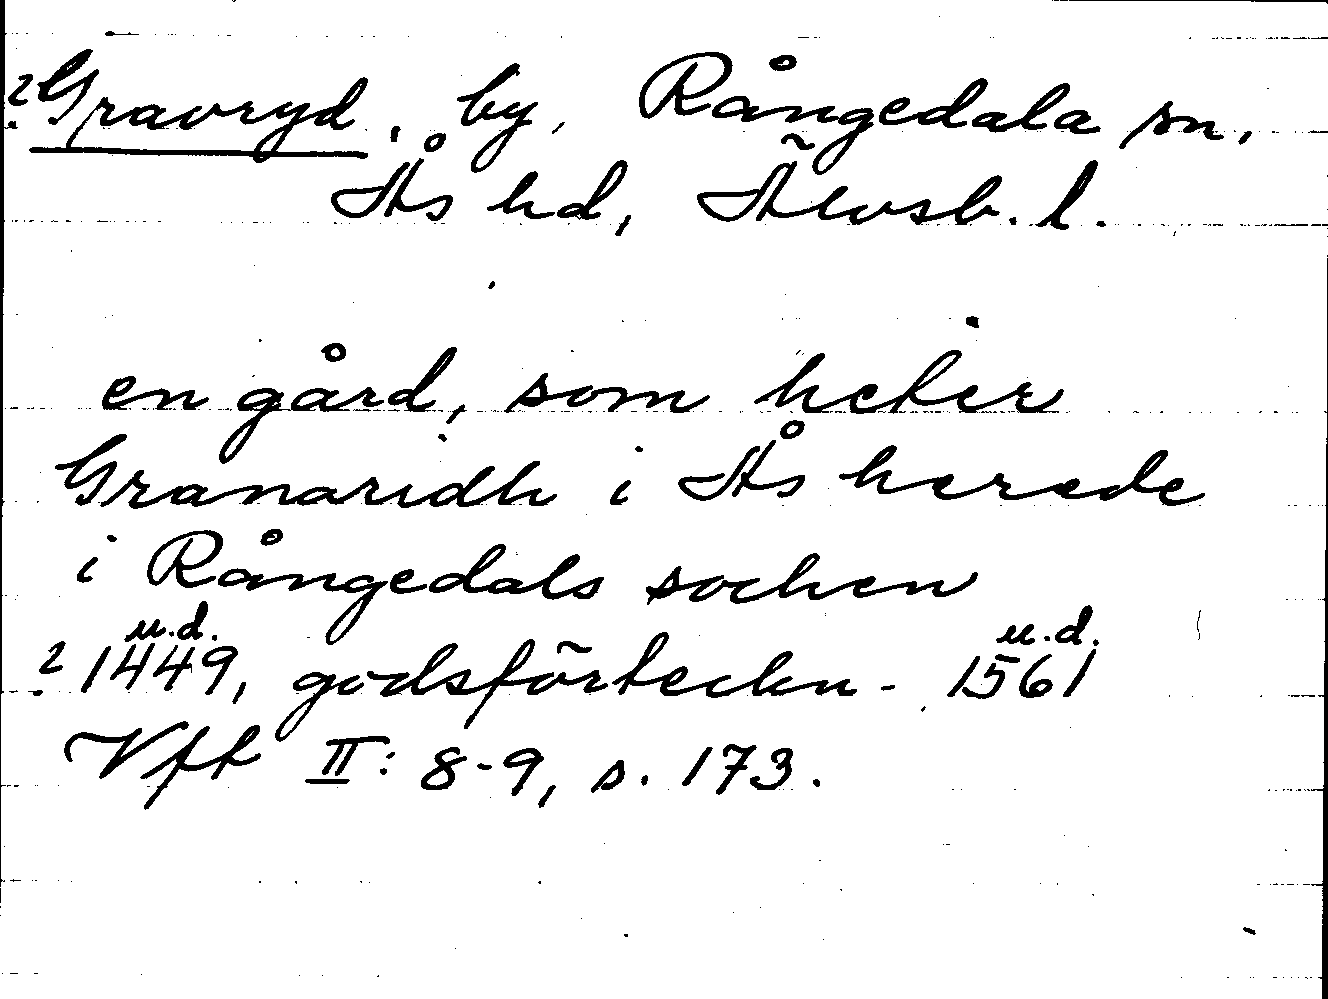 ?Gravryd, by, Rångedala sn,
Ås hd, Älvsb. l.
en gård, som heter
Granaridh i Ås herede
i Rångedals sochen
u.d. u.d.
? 1449, godsförteckn. 1561
Vft II: 8-9, s. 173.